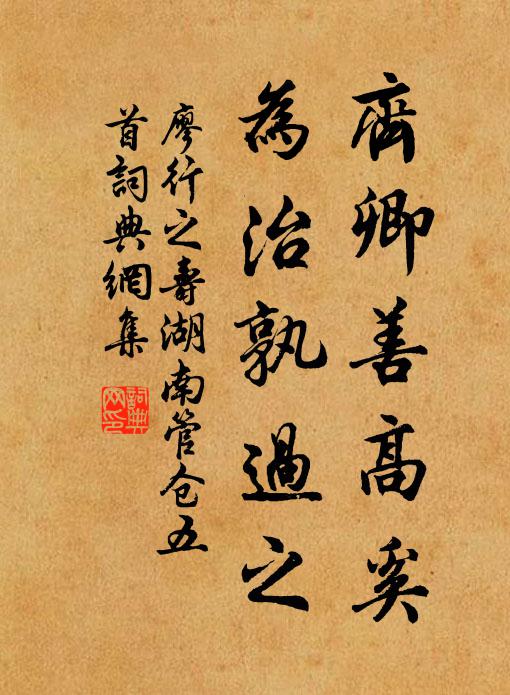 齊卿善高奚
為治孰過之
廖行之壽湖南管仓五
首詞典網集
詞典网印